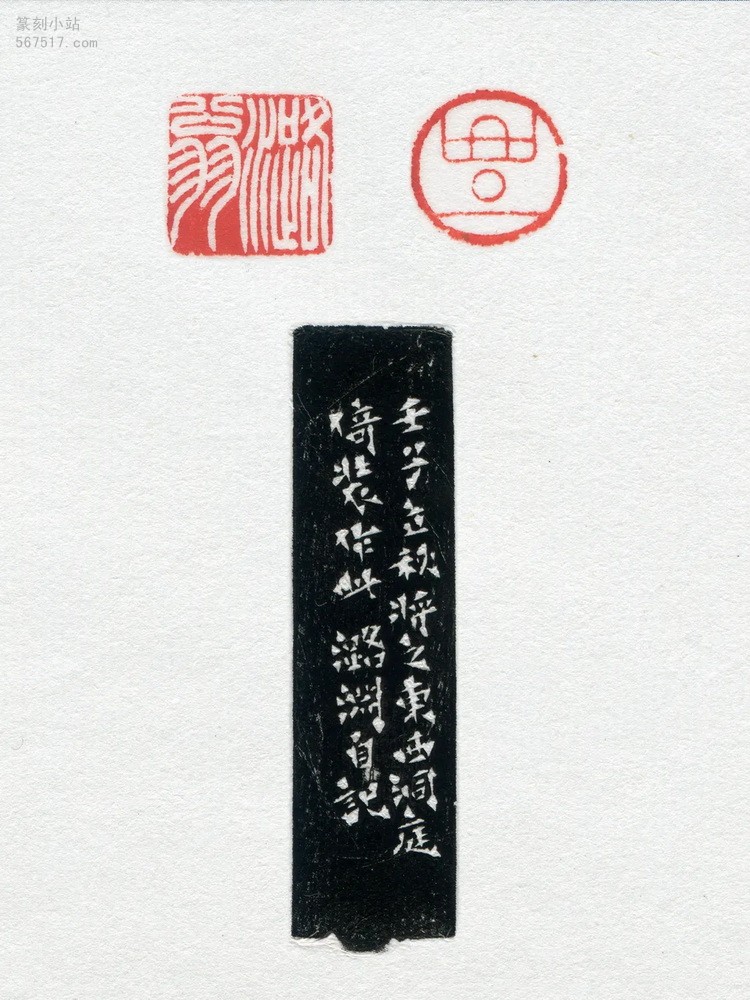 篆刻小站
567517.com
潞翁
壬子立秋将之東西洞庭
倚装作此 潞淵自記